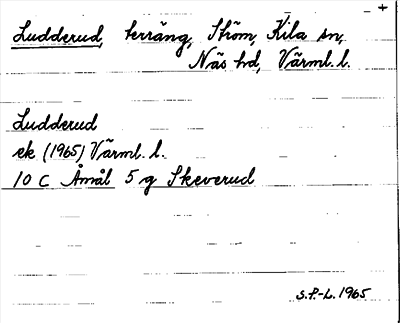 +
Ludderud, terräng, Ström, Kila sn,
Näs hd, Värml. l.
Ludderud
ek (1965) Värml. l.
10 C Åmål 5 g Skeverud
S.P.-L. 1965